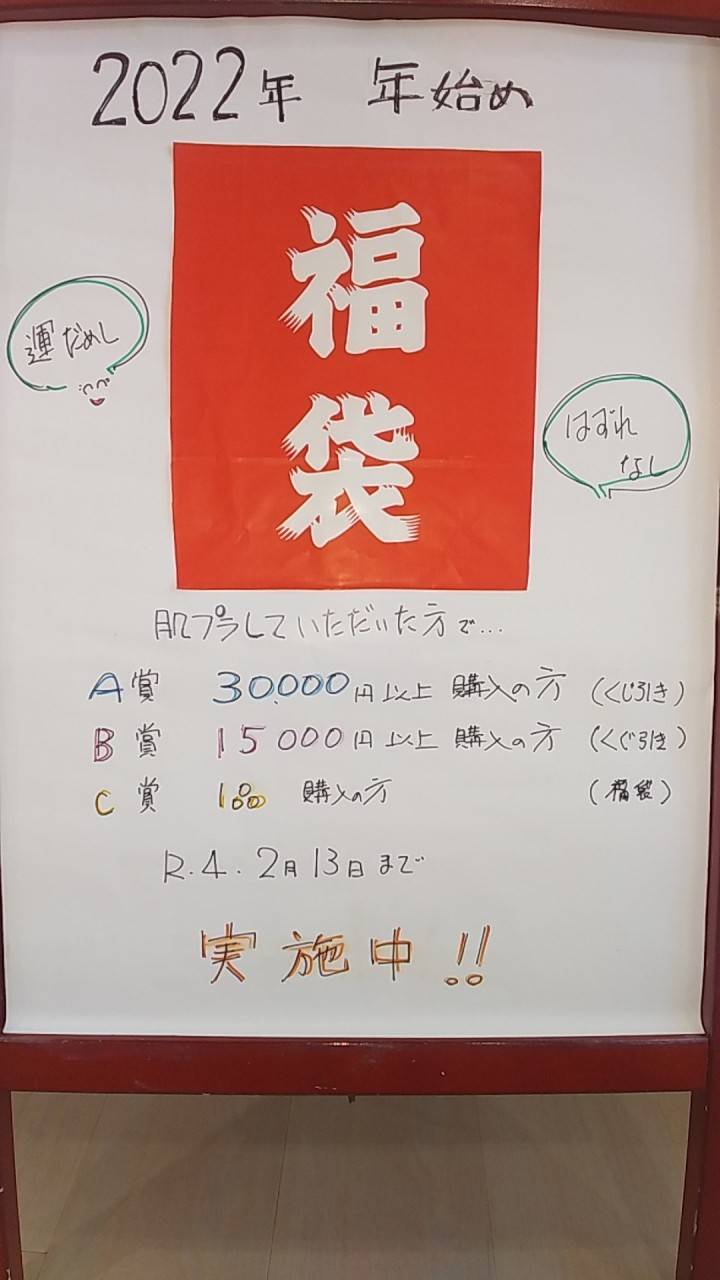 2022年 年始め
福
袋
運だめし
はずれ
なし
肌プラしていただいた方で...
A賞 30.000円以上 購入の方 (くじ引き)
B賞 15000円以上 購入の方 (くじ引き)
C賞 1品 購入の方 (福袋)
R.4.2月13日まで
実施中!!